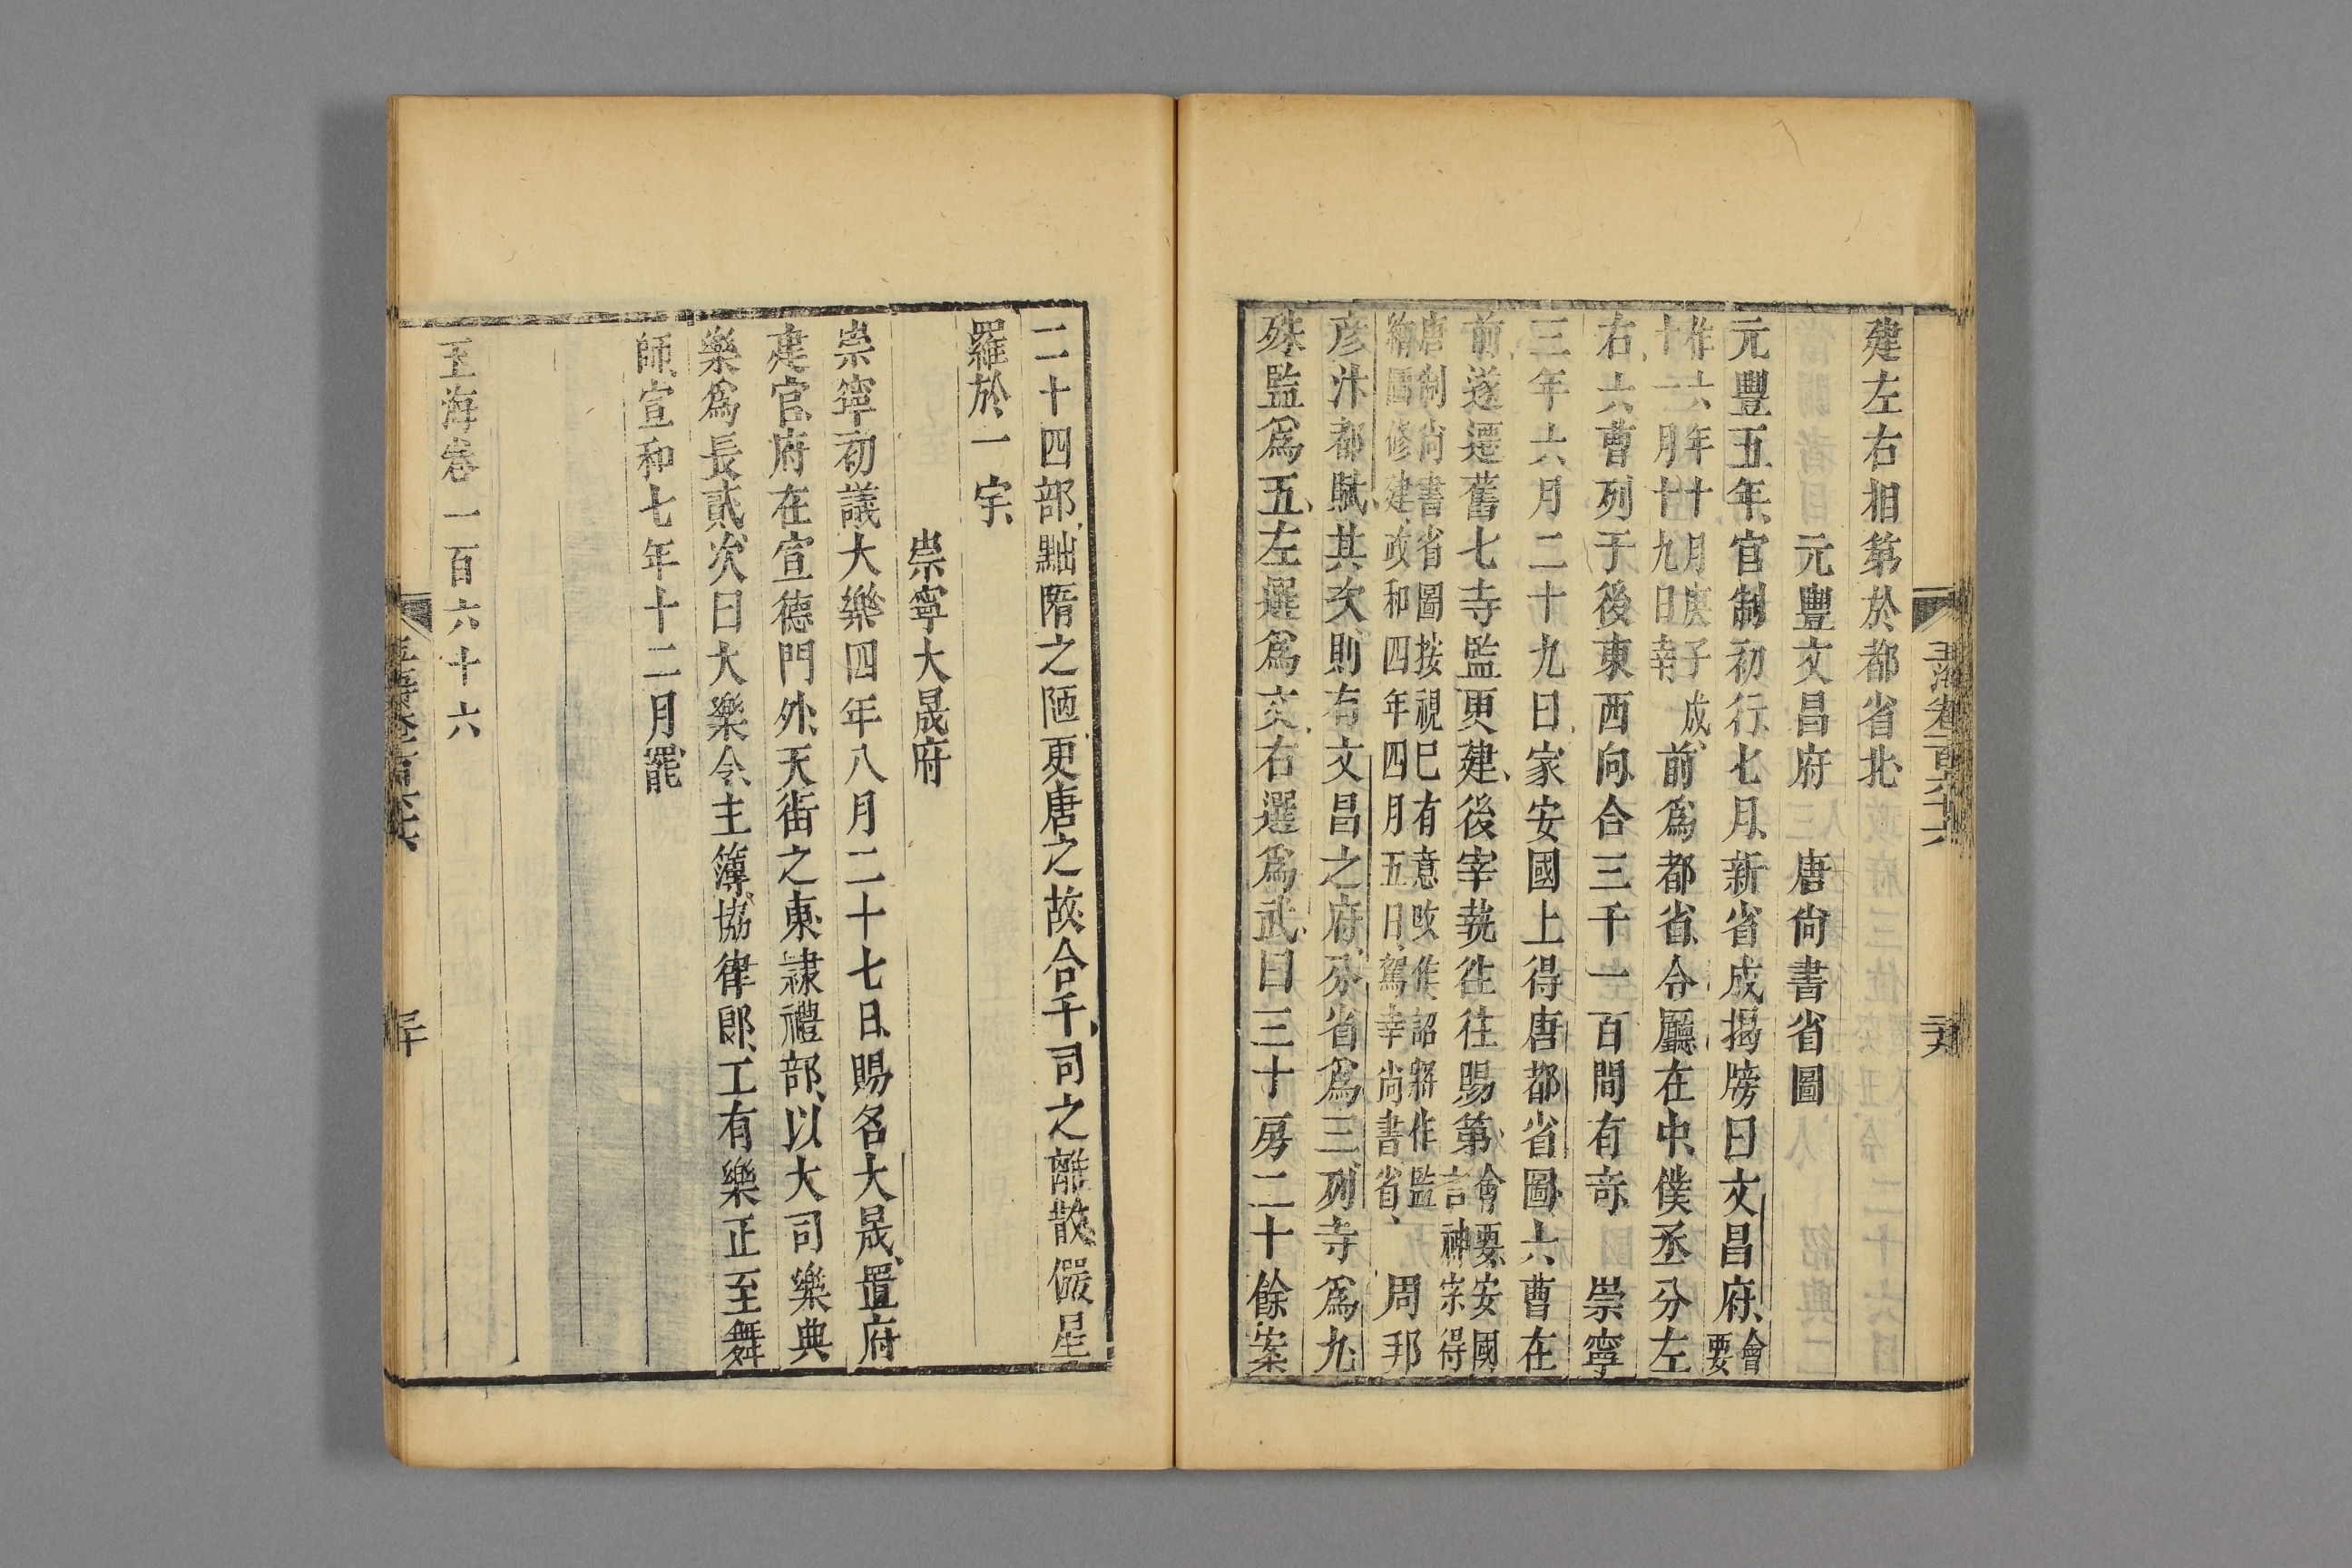 建左右相第於都省北
元豐文昌府 唐尚書省圖
元豐五年官制初行七月新省成揭牓曰文昌府會要
作六年十月庚子成
十一月十九日幸
前爲都省令廳在中僕丞分左
右六曹列于後東西向合三千一百間有奇 崇寧
三年六月二十九日家安國上得唐都省圖六曹在
前遂遷舊七寺監更建後宰執徃往賜第會要安國
言神宗得
唐制尚書省圖按視巳有意改作詔將作監
繪圖修建政和四年四月五日駕幸尚書省
周邦
彥汴都賦其次則有文昌之府分省爲三列寺爲九
殊監爲五左選爲文右選爲武曰三十房二十餘案
玉海卷一百六十六
二十四部黜隋之陋更唐之故合千司之離散儼星
羅於一宇
崇寧大晟府
崇寧初議大樂四年八月二十七日賜名大晟置府
建官府在宣德門外天街之東隷禮部以大司樂典
樂爲長貳次曰大樂令主簿協律郎工有樂正至舞
師宣和七年十二月罷
玉海卷一百六十六